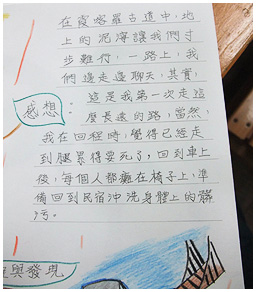 在霞喀羅古道中,地
上的泥濘讓我們寸
步難行,一路上,我
們邊走邊聊天,其實,
感想:
這是我第一次走這
麼長遠的路,當然,
我在回程時,覺得已經走
到腿累得要死了,回到車上
後,每個人都癱在椅子上,準
備回到民宿沖洗身體上的髒
污。
與發現